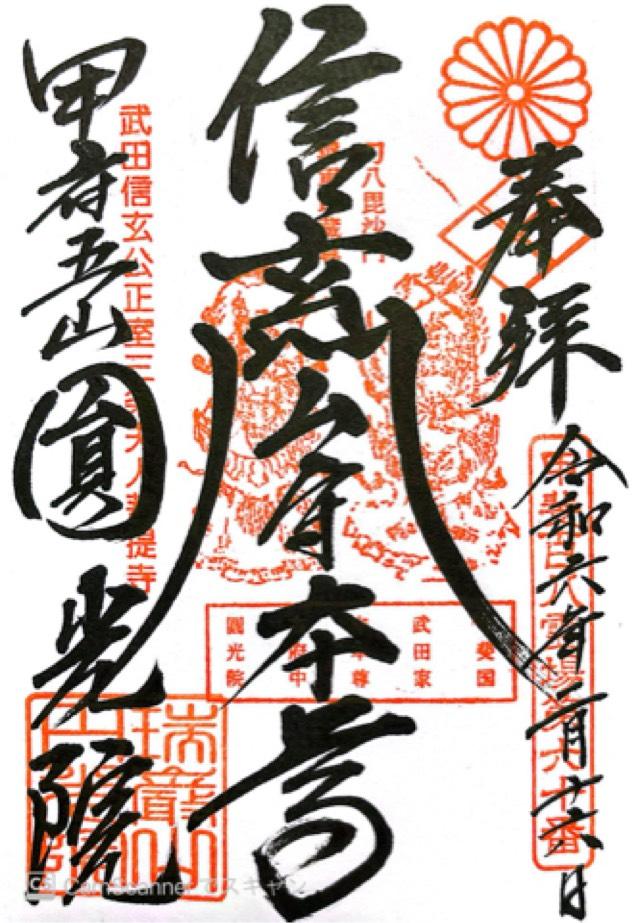 奉拝
令和六年二月廿六日
信玄公守本尊
甲府五山
圓光院
武田信玄公正室三条夫人菩提寺
刀八毘沙門
甲斐国
武田家
守本尊
府中
圓光院
甲斐百八霊場第六十番
瑞巖山
CamScanner でスキャン